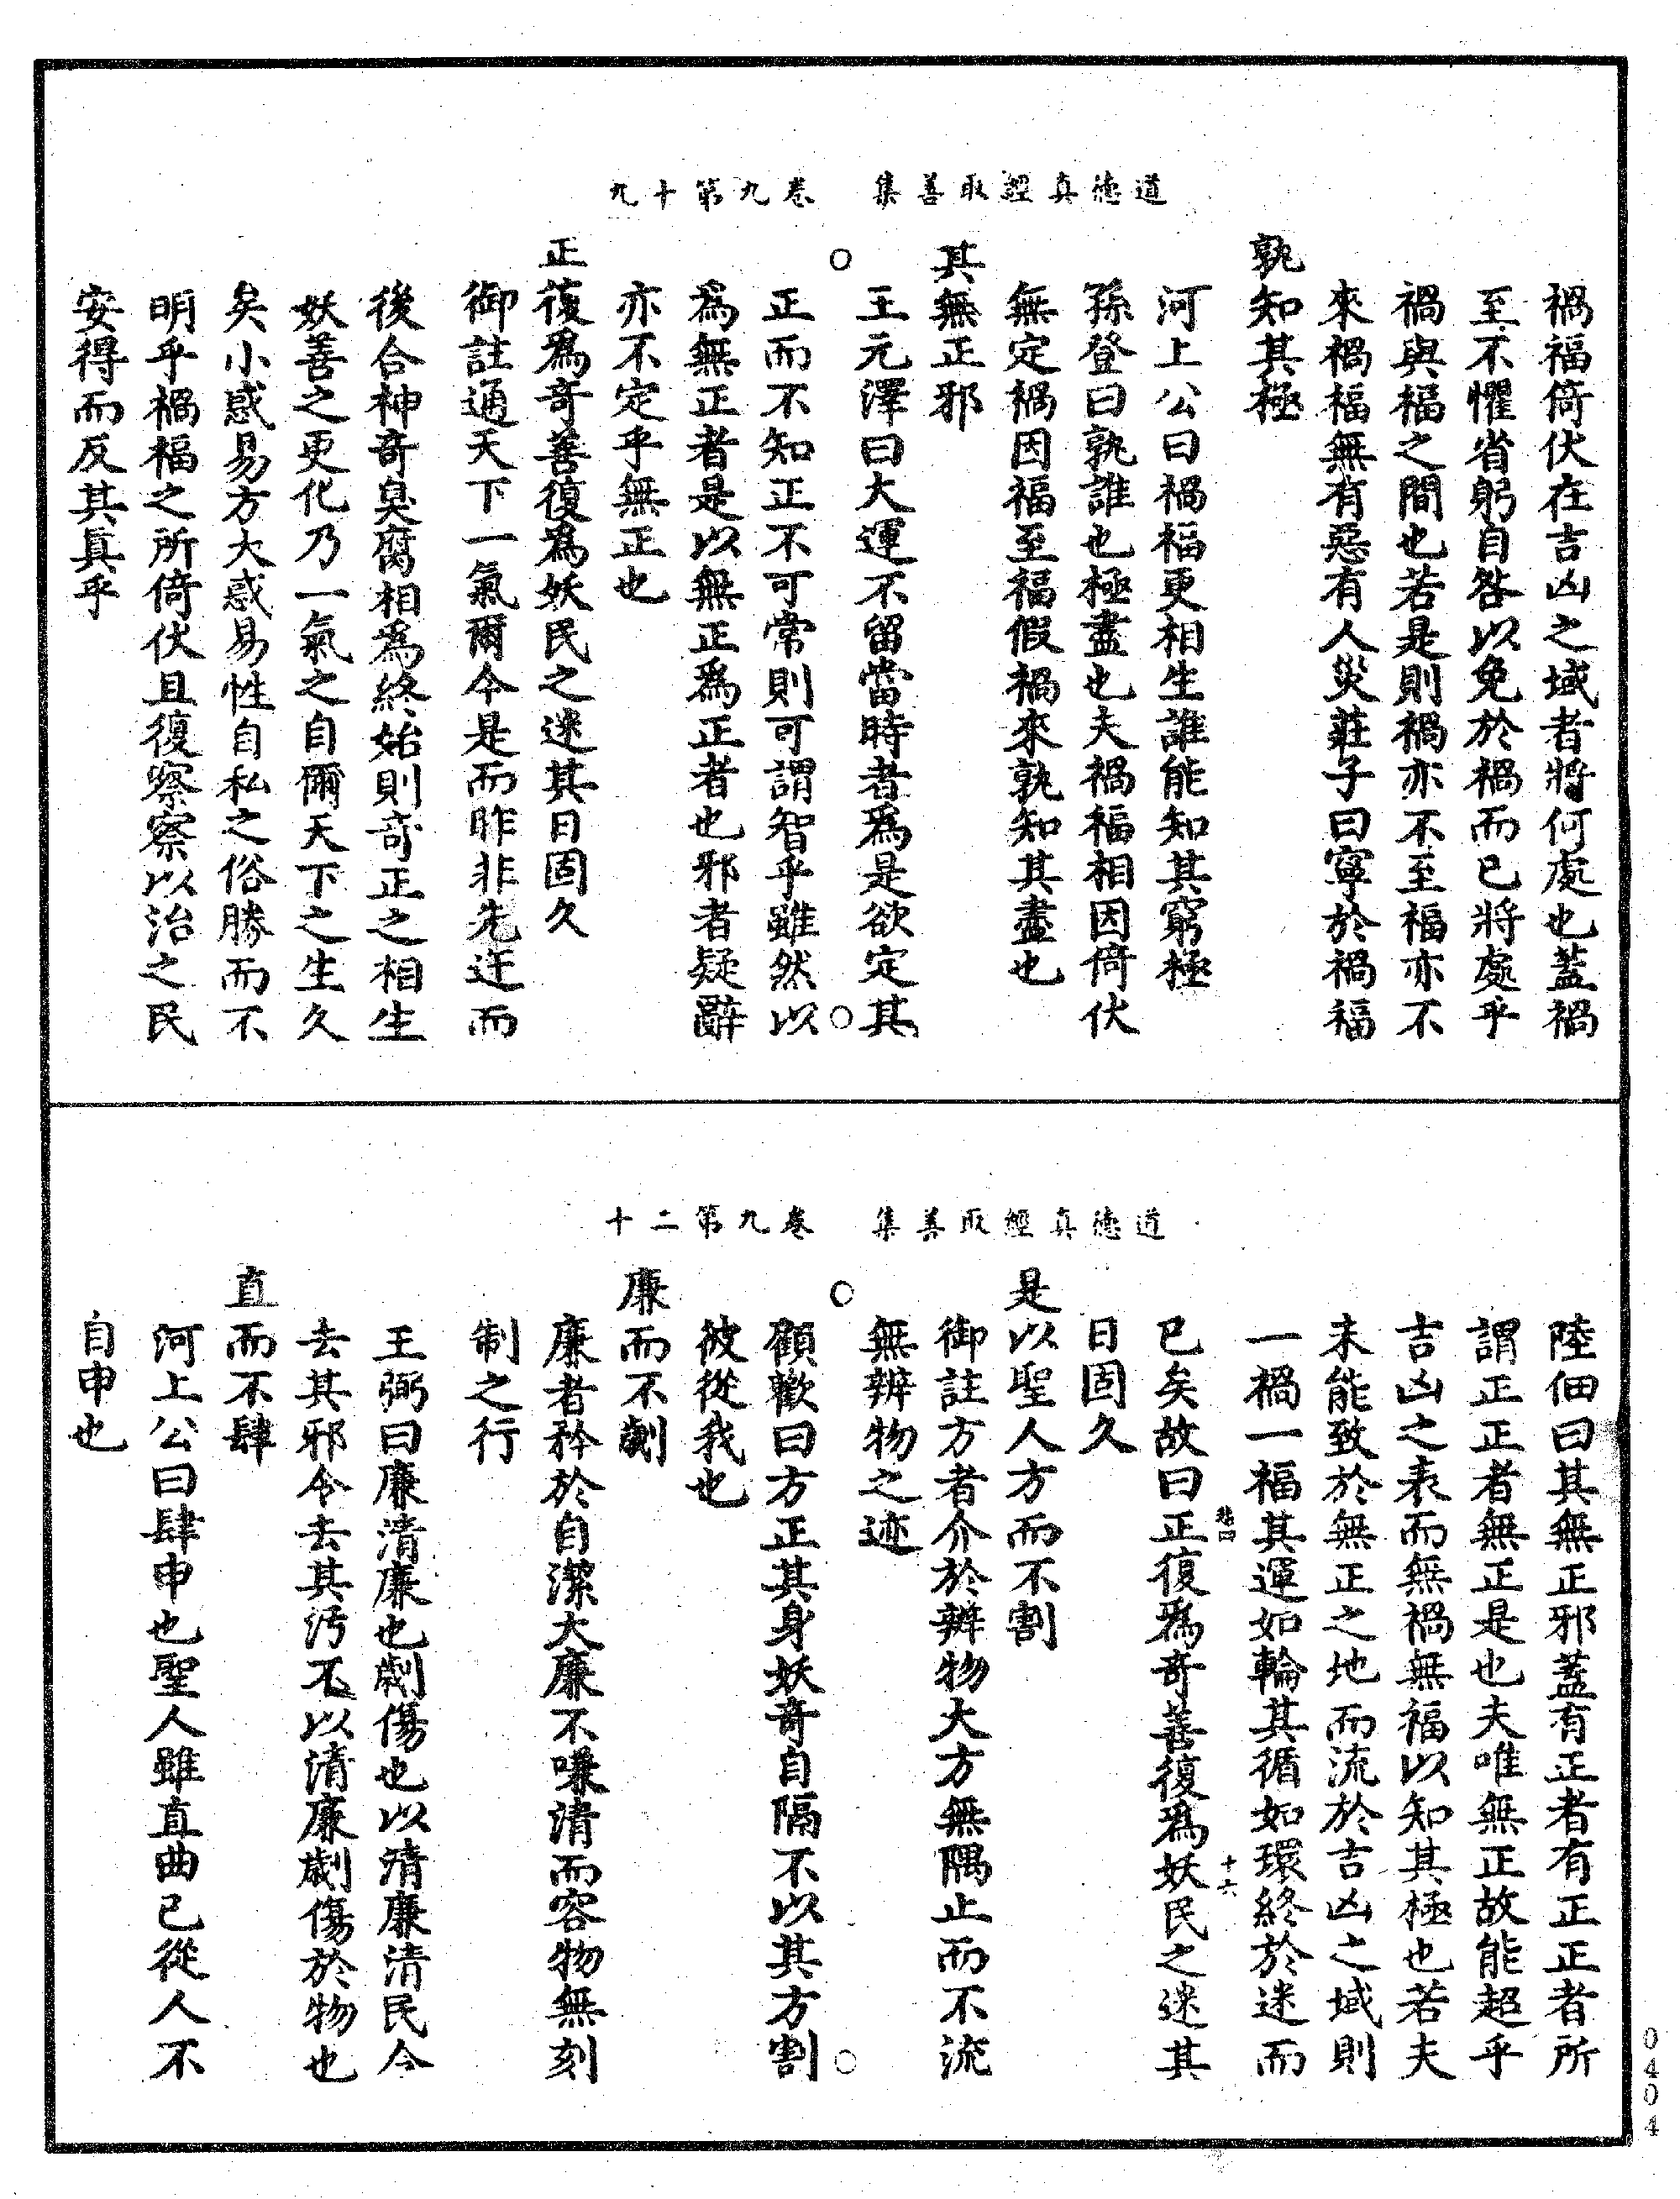 道德真經取善集　卷九第十九
禍福倚伏在吉凶之域者將何處也蓋禍
至不懼省躬自咎以免於禍而已將處乎
禍與福之間也若是則禍亦不至福亦不
來禍福無有惡有人災莊子曰寧於禍福
孰知其極
河上公曰禍福更相生誰能知其窮極
孫登曰孰誰也極盡也夫禍福相因倚伏
無定禍因福至福假禍來孰知其盡也
其無正邪
王元澤曰大運不留當時者爲是欲定其
正而不知正不可常則可謂智乎雖然以
爲無正者是以無正爲正者也邪者疑辭
亦不定乎無正也
正復爲奇善復爲妖民之迷其日固久
御註通天下一氣爾今是而昨非先迕而
後合神奇臭腐相爲終始則奇正之相生
妖善之更化乃一氣之自爾天下之生久
矣小惑易方大惑易性自私之俗勝而不
明乎禍福之所倚伏且復察察以治之民
安得而反其真乎
道德真經取善集　卷九第二十
陸佃曰其無正邪蓋有正者有正正者所
謂正正者無正是也夫唯無正故能超乎
吉凶之表而無禍無福以知其極也若夫
未能致於無正之地而流於吉凶之域則
一禍一福其運如輪其循如環終於迷而
十六
已矣故曰正復爲奇善復爲妖民之迷其
日固久
是以聖人方而不割
御註方者介於辨物大方無隅止而不流
無辨物之迹
顧歡曰方正其身妖奇自隔不以其方割
彼從我也
廉而不劌
廉者矜於自潔大廉不嗛清而容物無刻
制之行
王弼曰廉清廉也劌傷也以清廉清民令
去其邪令去其污不以清廉劌傷於物也
直而不肆
河上公曰肆申也聖人雖直曲已從人不
自申也
0404